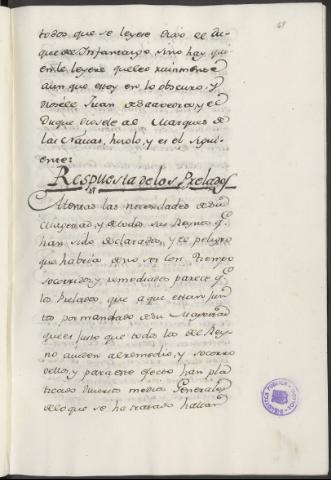 41
todos que se leyere Dixo el Du-
que del Infantazgo, sino hay qui-
en le leyere
aun que estoy en lo obscuro. y
Juan de y el
Duque diosele al Marques de
las Navas, hizolo, y es el sigui-
ente:
Respuesta de los Prelados
Atentas las necesidades de Su
Magestad, y de todos sus Reynos q.e
han sido declaradas, y el peligro
que habria de no ser con tiempo
socorridas, y remediadas parece q.e
los Prelados, que aqui estan jun-
tos por mandado de Su Magestad
que es justo que todos los del Rey-
no ayuden al remedio, y socorro
dellos, y para este efecto han pla-
ticado diversos medios Generales
de lo que se ha tratado hallan